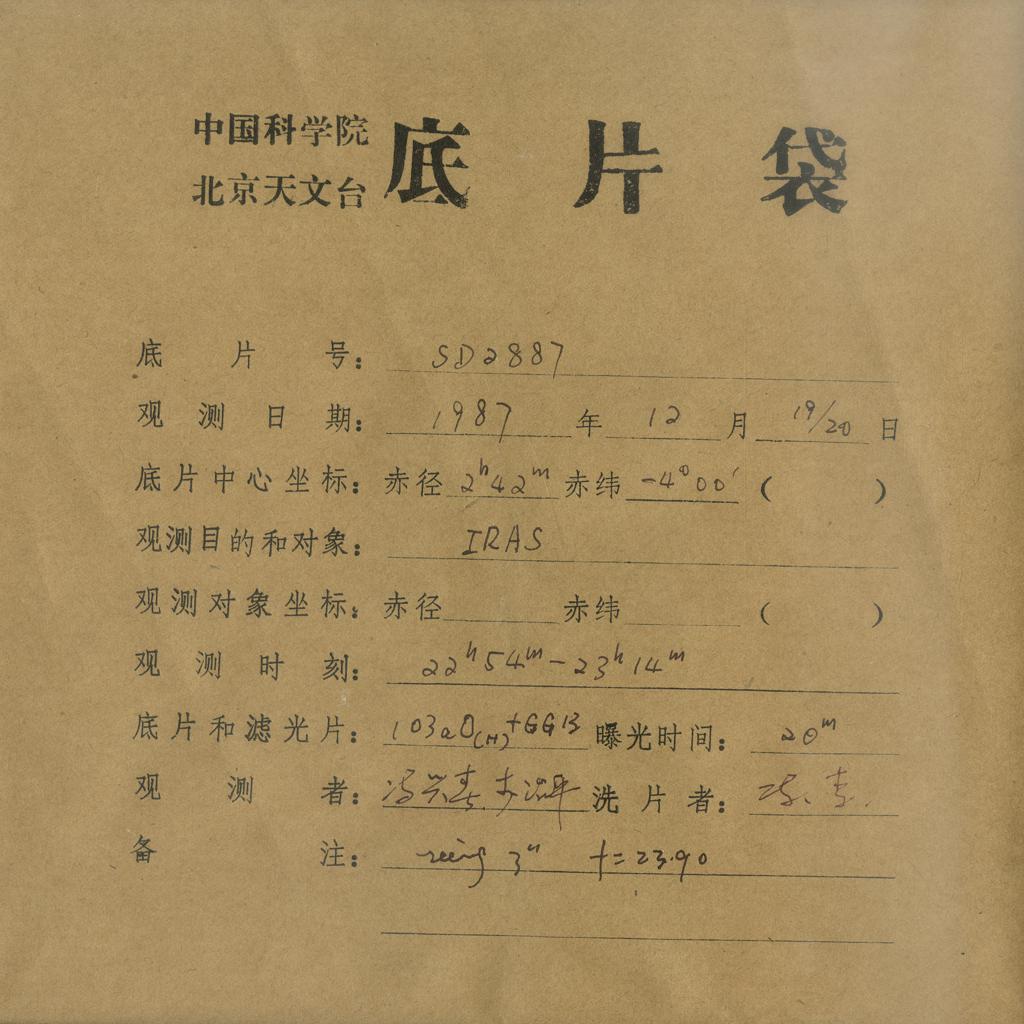 中国科学院
北京天文台
底片袋
底片号: SD2887
观测日期: 1987年12月19/20日
底片中心坐标: 赤径 2ʰ42ᵐ 赤纬 -4°00′ ( )
观测目的和对象: IRAS
观测对象坐标: 赤径 赤纬 ( )
观测时刻: 22ʰ54ᵐ-23ʰ14ᵐ
底片和滤光片: 103aO(H)+GG13 曝光时间: 20ᵐ
观测者: 洗片者:
备注: seeing 3" f=23.90